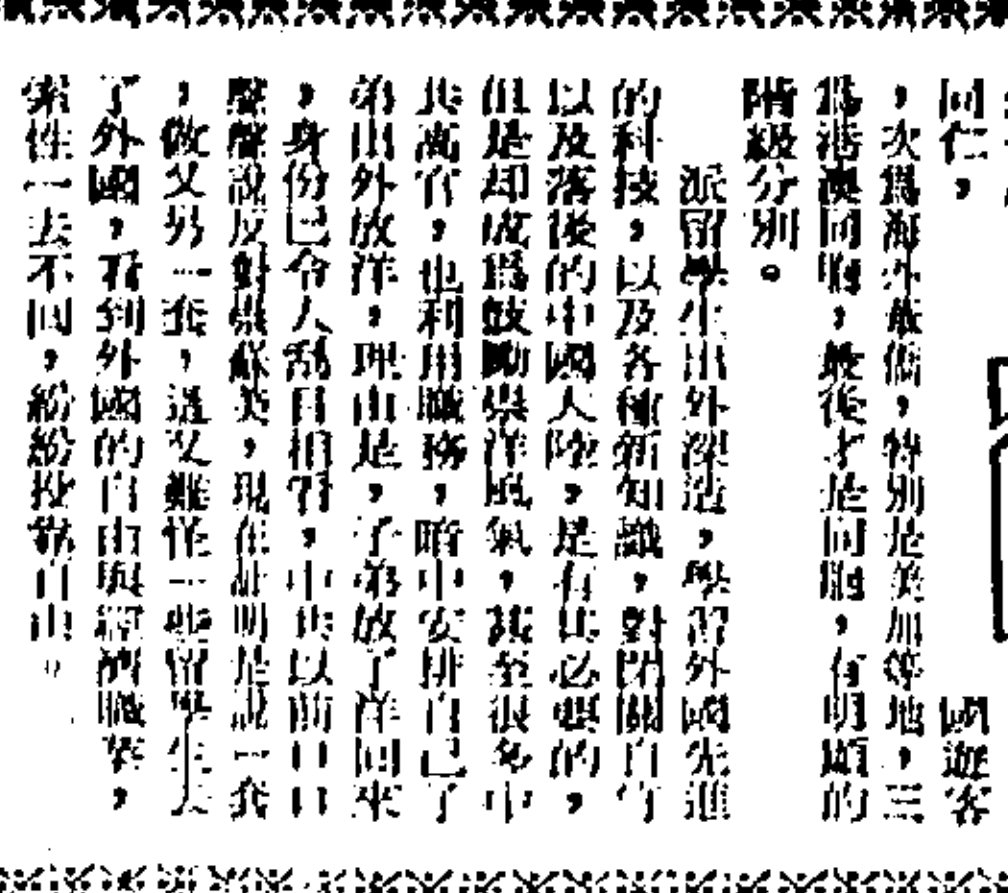 同仁，　國遊客
，次爲海外華僑，特別是美加等地，三
爲港澳同胞，最後才是同胞，有明顯的
階級分別。
派留學生出外深造，學習外國先進
的科技，以及各種新知識，對閉關自守
以及落後的中國大陸，是有其必要的，
但是却成爲鼓勵崇洋風氣，甚至很多中
共高官，也利用職務，暗中安排自己子
弟出外放洋，理由是，子弟放了洋回來
，身份已令人刮目相看，中共以前口口
聲聲說反對崇蘇美，現在証明是說一套
，做又另一套，這又難怪一些留學生去
了外國，看到外國的自由與經濟職業，
索性一去不回，紛紛投靠自由。